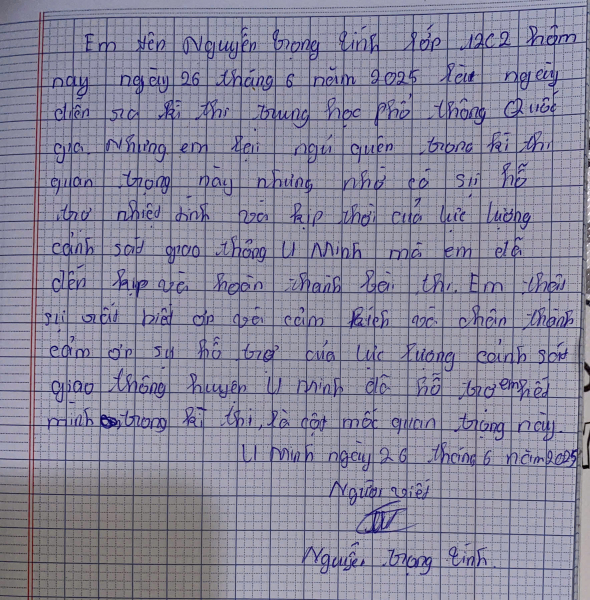 Em tên Nguyễn trọng tính lớp 12C2 hôm
nay ngày 26 tháng 6 năm 2025 là ngày
diễn ra kì thi trung học phổ thông Quốc
gia. Nhưng em lại ngủ quên trong kì thi
quan trọng này nhưng nhờ có sự hỗ
trợ nhiệt tình và kịp thời của lực lượng
cảnh sát giao thông U Minh mà em đã
đến kịp và hoàn thành bài thi. Em thật
sự rất biết ơn và cảm kích và chân thành
cảm ơn sự hỗ trợ của lực lượng cảnh sát
giao thông huyện U Minh đã hỗ trợ em hết
mình trong kì thi, là cột mốc quan trọng này.
U Minh ngày 26 tháng 6 năm 2025
Người viết
Nguyễn trọng tính